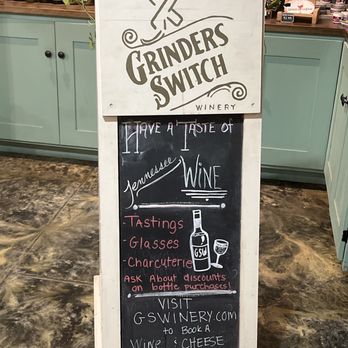 GRINDERS
SWITCH
WINERY
HAVE A TASTE OF
Tennessee
WINE
- TASTINGS
- GLASSES
- CHARCUTERIE
GSW
ASK ABOUT DISCOUNTS
on bottle purchases!
VISIT
GSWINERY.COM
to BOOK A
WINE & CHEESE